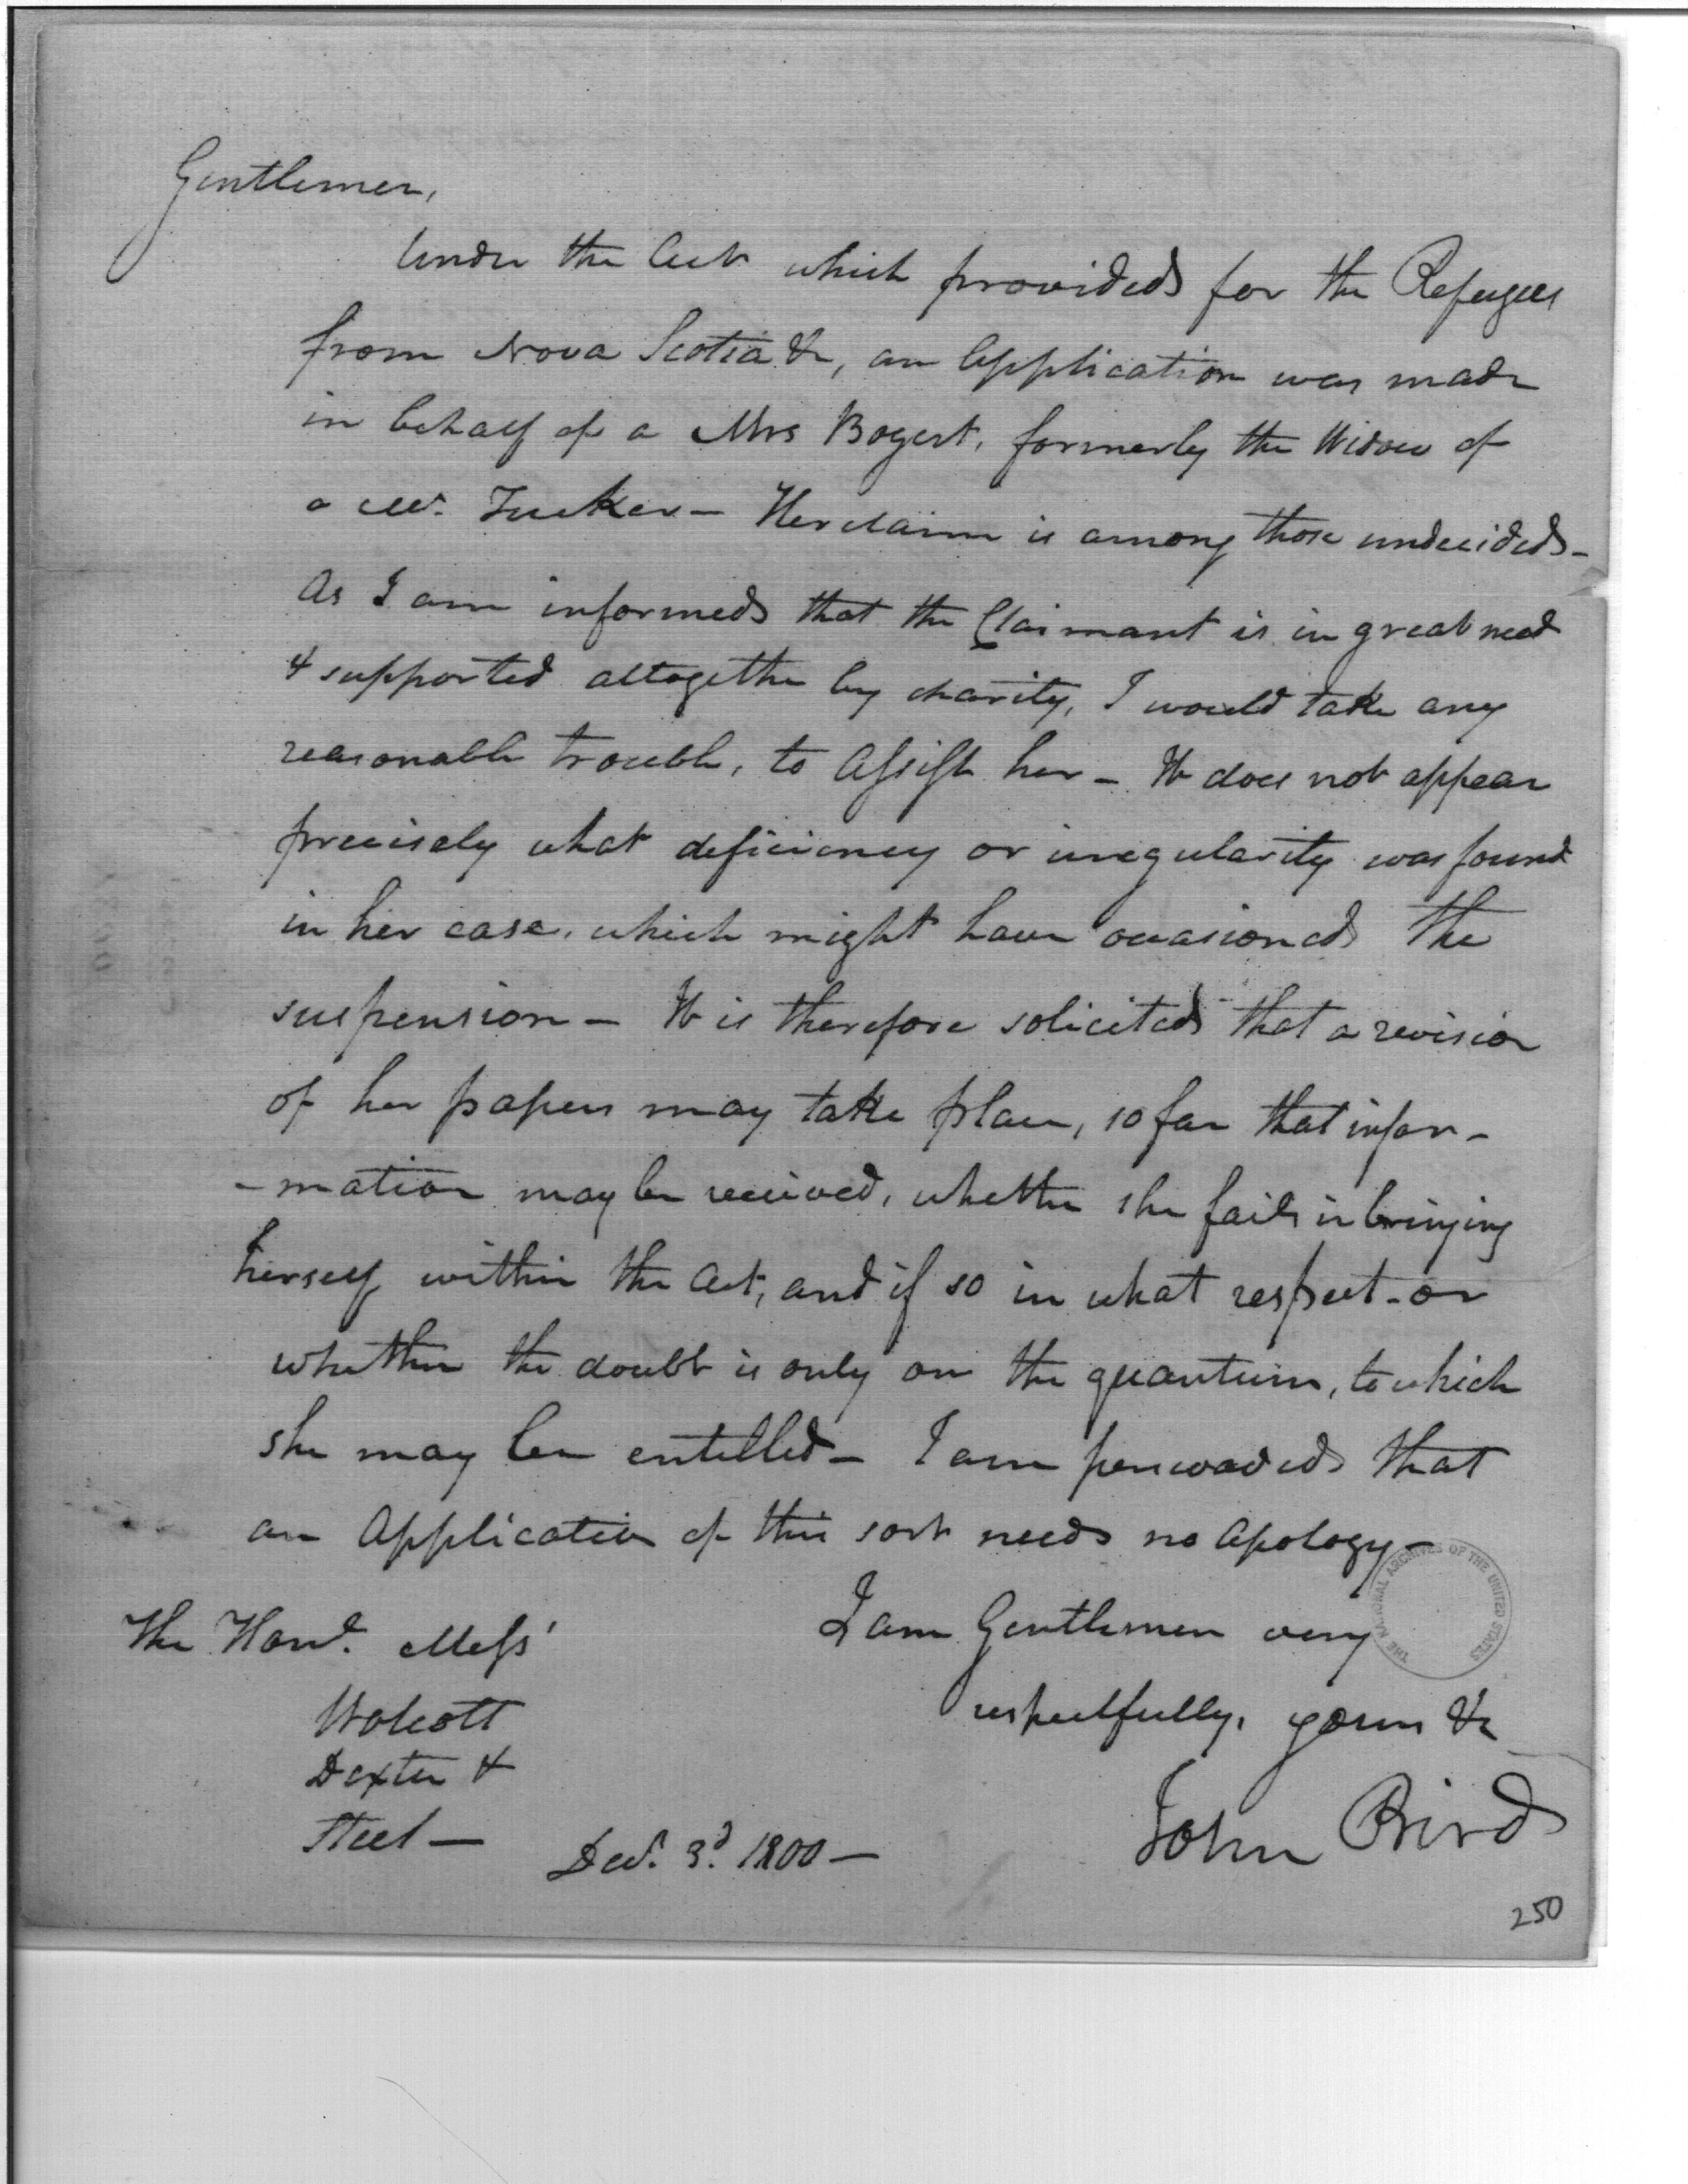 Gentlemen,
Under the Act which provided for the Refugees
from Nova Scotia &c, an Application was made
in behalf of a Mrs Bogert, formerly the Widow of
a Mr. Tucker - Her claim is among those undecided -
As I am informed that the Claimant is in great need
& supported altogether by charity, I would take any
reasonable trouble, to Assist her - It does not appear
precisely what deficiency or irregularity was found
in her case, which might have occasioned the
suspension - It is therefore solicited that a revision
of her papers may take place, so far that infor-
-mation may be received, whether she fails in bringing
herself within the Act, and if so in what respect - or
whether the doubt is only on the quantum, to which
she may be entitled - I am perswaded that
an Application of this sort needs no Apology -
I am Gentlemen very
respectfully, yours &c
John Bird
The Honl. Mess'
Wolcott
Dexter &
Steel -
Decr. 3d. 1800 -
THE NATIONAL ARCHIVES OF THE UNITED STATES
250